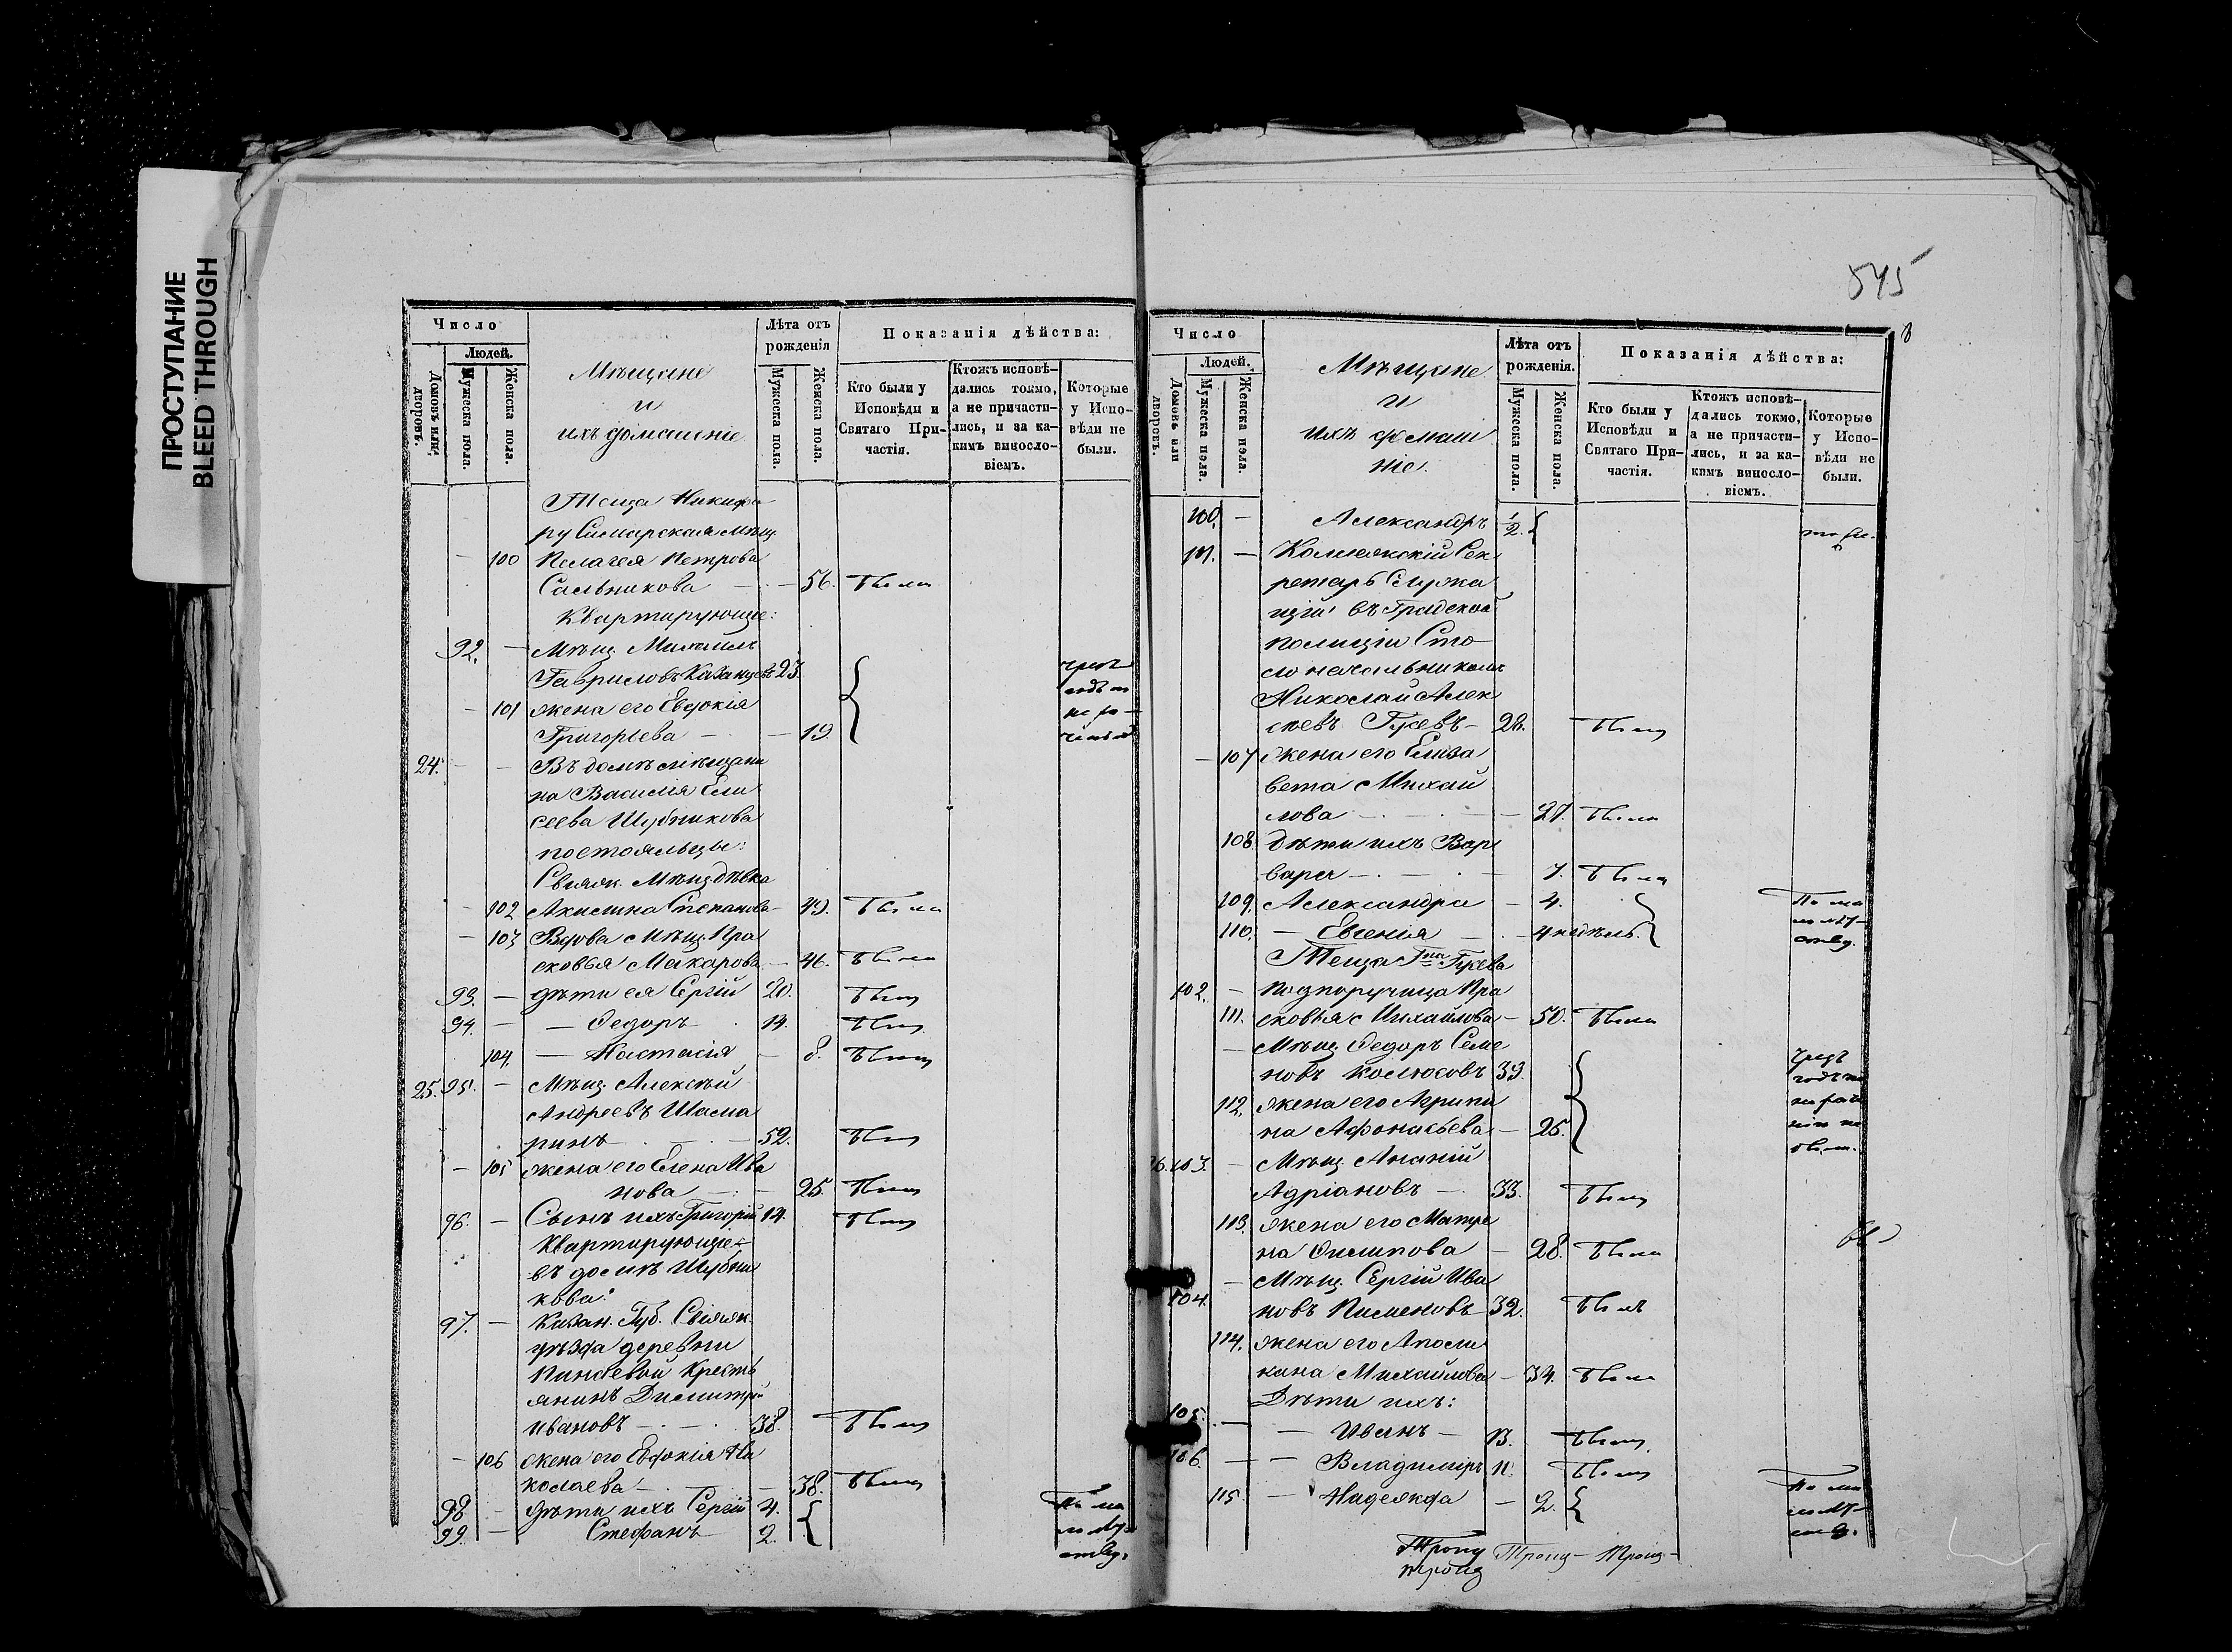 ПРОСТУПАНИЕ
BLEED THROUGH
545
Число
Людей.
Домовъ или дворовъ.
Мужеска пола.
Женска пола.
Мѣщане
и
ихъ домашніе
Лѣта отъ рожденія
Мужеска пола.
Женска пола.
Показанія дѣйства:
Кто были у Исповѣди и Святаго Причастія.
Ктожъ исповѣдались токмо, а не причастились, и за какимъ винословіемъ.
Которые у Исповѣди не были.
Теща Никифо
ру Симарская Мѣщ.
100 Пелагея Петрова
Сальникова — — 56. была
Квартирующіе:
92. — Мѣщ. Михаилъ
Гавриловъ Казанцевъ 23.
— 101 жена его Евдокія
Григорьева — — 19.
24. — — Въ домѣ мѣщани
на Василія Ели
сеева Шубникова
постояльцы:
Свіяж. Мѣщ. дѣвка
— 102 Акилина Степанова — 49. была
— 103 Вдова Мѣщ. Пра
сковья Макарова — 46. была
93. — дѣти ея Сергій 20. былъ
94. — — Ѳедоръ 14. былъ
104. — Настасія — 8. была
25. 95. — Мѣщ. Алексѣй
Андреевъ Шама
ринъ — 52. былъ
— 105 жена его Елена Ива
нова — — 25. была
96. — Сынъ ихъ Григорій 14. былъ
Квартирующіе
въ домѣ Шубни
кова:
97. — Казан. Губ. Свіяж.
уѣзда деревни
крестъ
янинъ Димитрій
Ивановъ — 38. былъ
— 106 жена его Евдокія Ни
колаева — — 38. была
98 — дѣти ихъ Сергій 4. По ма
99. — Стефанъ 2. лолѣт
ству.
Число
Людей.
Домовъ или дворовъ.
Мужеска пола.
Женска пола.
Мѣщане
и
ихъ домаш
ніе.
Лѣта отъ рожденія.
Мужеска пола.
Женска пола.
Показанія дѣйства:
Кто были у Исповѣди и Святаго Причастія.
Ктожъ исповѣдались токмо, а не причастились, и за какимъ винословіемъ.
Которые у Исповѣди не были.
100. — Александръ 1/2.
101. — Коллежскій Сек
ретарь Служа
щій въ Градской
полиціи Сто
лоначальникомъ
Николай Алек
сѣевъ Гусевъ — 28. былъ
— 107 жена его Елиза
вета Михай
лова — — 27. была
108. дѣти ихъ Вар
вара — — 7. была
109. Александра — 4. По ма
лолѣт
110. — Евгенія — 4 недѣль. ству.
Теща Гна Гусева
102. — Подпоручица Пра
111. сковья Михайлова — 50. была
— Мѣщ. Ѳедоръ Семе
новъ 39.
112. жена его Агрипи
на Афонасьева — 25.
26. 103. — Мѣщ. Ананій
Адріановъ — 33. былъ
113. жена его Матре
на — 28. была
— Мѣщ. Сергій Ива
104. новъ Пименовъ 32. былъ
114. жена его Аполи
нария Михайлова — 34. была
Дѣти ихъ:
105. — — Иванъ — 13. былъ
106. — — Владиміръ 11. былъ
115. — Надежда — 2. По ма
лолѣт
ству.